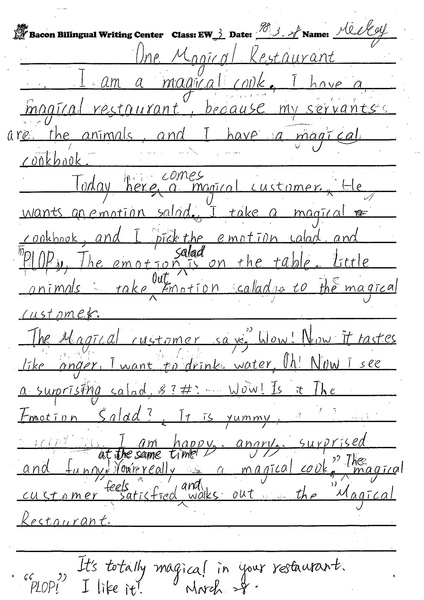 Bacon Bilingual Writing Center Class: EW 3 Date: 90.3.28 Name: Mickey
One Magical Restaurant
I am a magical cook. I have a
magical restaurant, because my servants
are the animals, and I have a magical
cookbook.
Today here comes a magical customer. He
wants an emotion salad. I take a magical
cookbook, and I pick the emotion salad and
"PLOP", The emotion salad is on the table. Little
animals take out emotion salad to the magical
customer.
The Magical customer say, "Wow! Now it tastes
like anger. I want to drink water, Oh! Now I see
a surprising salad, &?#: Wow! Is it The
Emotion Salad? It is yummy
I am happy, angry, surprised
and funny at the same time! You're really a magical cook." The magical
customer feels satisfied and walks out the "Magical
Restaurant.
It's totally magical in your restaurant.
"PLOP!" I like it! March 28.